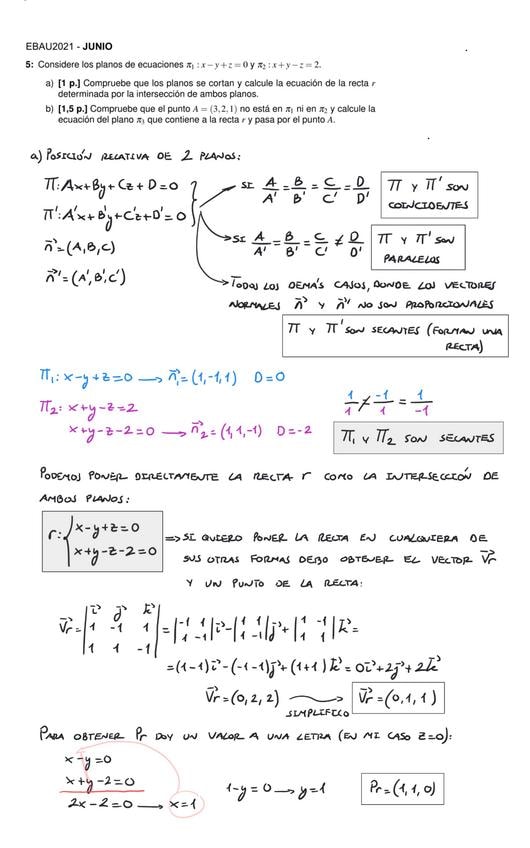 EBAU2021 - JUNIO
5: Considere los planos de ecuaciones π₁ : x − y + z = 0 y π₂ : x + y − z = 2.
a) [1 p.] Compruebe que los planos se cortan y calcule la ecuación de la recta r
determinada por la intersección de ambos planos.
b) [1,5 p.] Compruebe que el punto A = (3,2,1) no está en π₁ ni en π₂ y calcule la
ecuación del plano π₃ que contiene a la recta r y pasa por el punto A.
a) POSICIÓN RELATIVA DE 2 PLANOS:
π: Ax+By+Cz+D=0
π': A'x+B'y+C'z+D'=0
n⃗=(A,B,C)
n⃗'=(A',B',C')
SI A/A' = B/B' = C/C' = D/D' π Y π' SON
COINCIDENTES
SI A/A' = B/B' = C/C' ≠ D/D' π Y π' SON
PARALELOS
TODOS LOS DEMÁS CASOS, DONDE LOS VECTORES
NORMALES n⃗ Y n⃗' NO SON PROPORCIONALES
π Y π' SON SECANTES (FORMAN UNA
RECTA)
π₁: x-y+z=0 → n⃗₁=(1,-1,1) D=0
π₂: x+y-z=2
x+y-z-2=0 → n⃗₂=(1,1,-1) D=-2
1/1 ≠ -1/1 = 1/-1
π₁ Y π₂ SON SECANTES
PODEMOS PONER DIRECTAMENTE LA RECTA r COMO LA INTERSECCIÓN DE
AMBOS PLANOS:
r: { x-y+z=0
x+y-z-2=0
=> SI QUIERO PONER LA RECTA EN CUALQUIERA DE
SUS OTRAS FORMAS DEBO OBTENER EL VECTOR V⃗r
Y UN PUNTO DE LA RECTA:
V⃗r = |i⃗ j⃗ k⃗; 1 -1 1; 1 1 -1| = |-1 1; 1 -1| i⃗ - |1 1; 1 -1| j⃗ + |1 -1; 1 1| k⃗ =
= (1-1)i⃗ - (-1-1)j⃗ + (1+1)k⃗ = 0i⃗+2j⃗+2k⃗
V⃗r=(0,2,2) → V⃗r=(0,1,1)
SIMPLIFICO
PARA OBTENER Pr DOY UN VALOR A UNA LETRA (EN MI CASO z=0):
x-y=0
x+y-2=0
2x-2=0 → x=1
1-y=0 → y=1
Pr=(1,1,0)